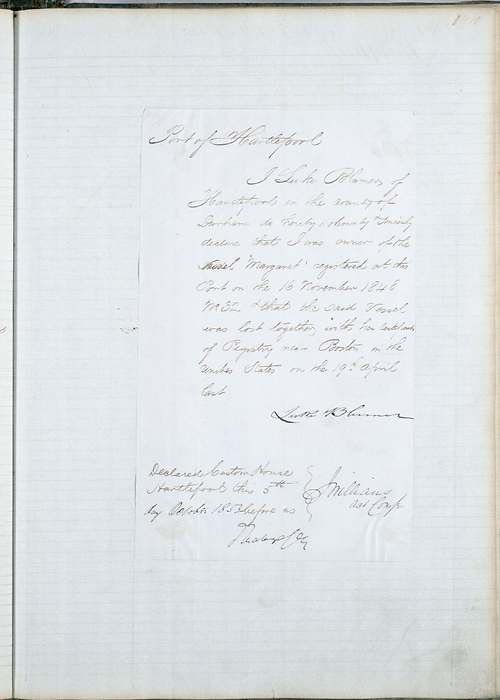 Port of Hartlepool
I Luke Blumer of
Hartlepool in the county of
Durham do hereby solemnly & sincerely
declare that I was owner of the
Vessel "Margaret" registered at this
Port on the 16 November 1846
No 32 & that the said Vessel
was lost together with her Certificate
of Registry near Boston in the
United States on the 19th April
last
Luke Blumer
Declared Custom House
Hartlepool this 5th
day October 1853 before us